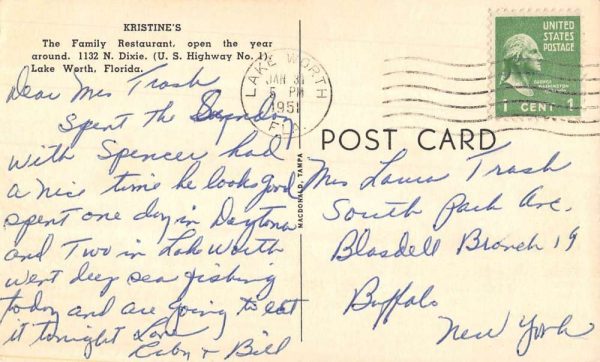 KRISTINE'S
The Family Restaurant, open the year
around. 1132 N. Dixie. (U. S. Highway No. 1)
Lake Worth, Florida.
Dear Mrs Trash
Spent the Sunday
with Spencer had
a nice time he looks good
spent one day in Daytona
and Two in Lake Worth
went deep sea fishing
today and are going to eat
it tonight Love
Ruby + Bill
LAKE WORTH
JAN 31
5 PM
1951
FLA
UNITED
STATES
POSTAGE
GEORGE
WASHINGTON
1 CENT 1
POST CARD
MACDONALD, TAMPA
Mrs Laura Trash
South Park Ave.
Blasdell Branch 19
Buffalo
New York